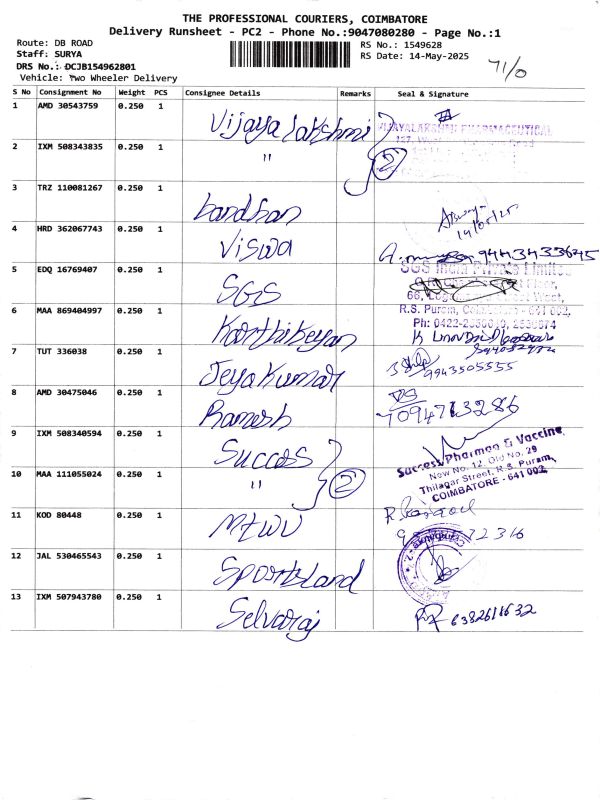 THE PROFESSIONAL COURIERS, COIMBATORE
Delivery Runsheet - PC2 - Phone No.:9047080280 - Page No.:1
Route: DB ROAD
Staff: SURYA
DRS No.: DCJB154962801
Vehicle: Two Wheeler Delivery
RS No.: 1549628
RS Date: 14-May-2025
71/0
S No Consignment No Weight PCS Consignee Details Remarks Seal & Signature
1 AMD 30543759 0.250 1 Vijayalakshmi
VIJAYALAKSHMI PHARMACEUTICAL
2 IXM 508343835 0.250 1 "
2
3 TRZ 110081267 0.250 1 bandhan
14/05/25
4 HRD 362067743 0.250 1 Viswa 9443433645
5 EDQ 16769407 0.250 1 SGS
SGS India Private Limited
R.S. Puram, Coimbatore - 641 002,
Ph: 0422-
6 MAA 869404997 0.250 1 Karthikeyan
7 TUT 336038 0.250 1 Jeyakumar
9943505555
8 AMD 30475046 0.250 1 Ramesh
9 IXM 508340594 0.250 1 Succes
Success Pharma & Vaccine
New No. 12, Old No. 29
Thilagar Street, R.S. Puram,
COIMBATORE - 641 002.
10 MAA 111055024 0.250 1 "
2
11 KOD 80448 0.250 1 MTWU
72316
12 JAL 530465543 0.250 1 Sportsland
13 IXM 507943780 0.250 1 Selvaraj
6382611632